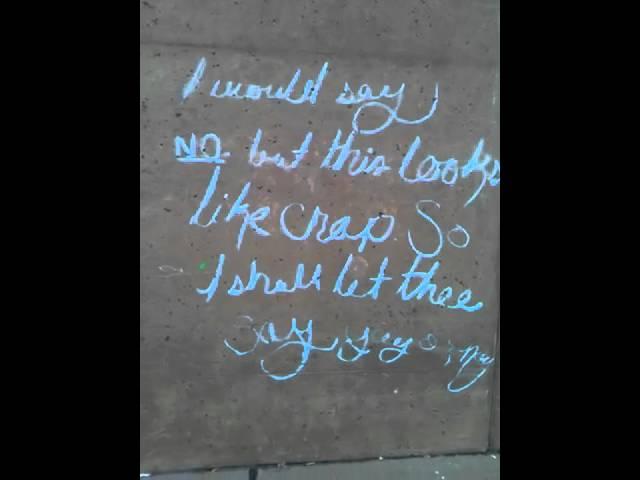 I would say
NO. but this looks
like crap. So
I shall let thee
say